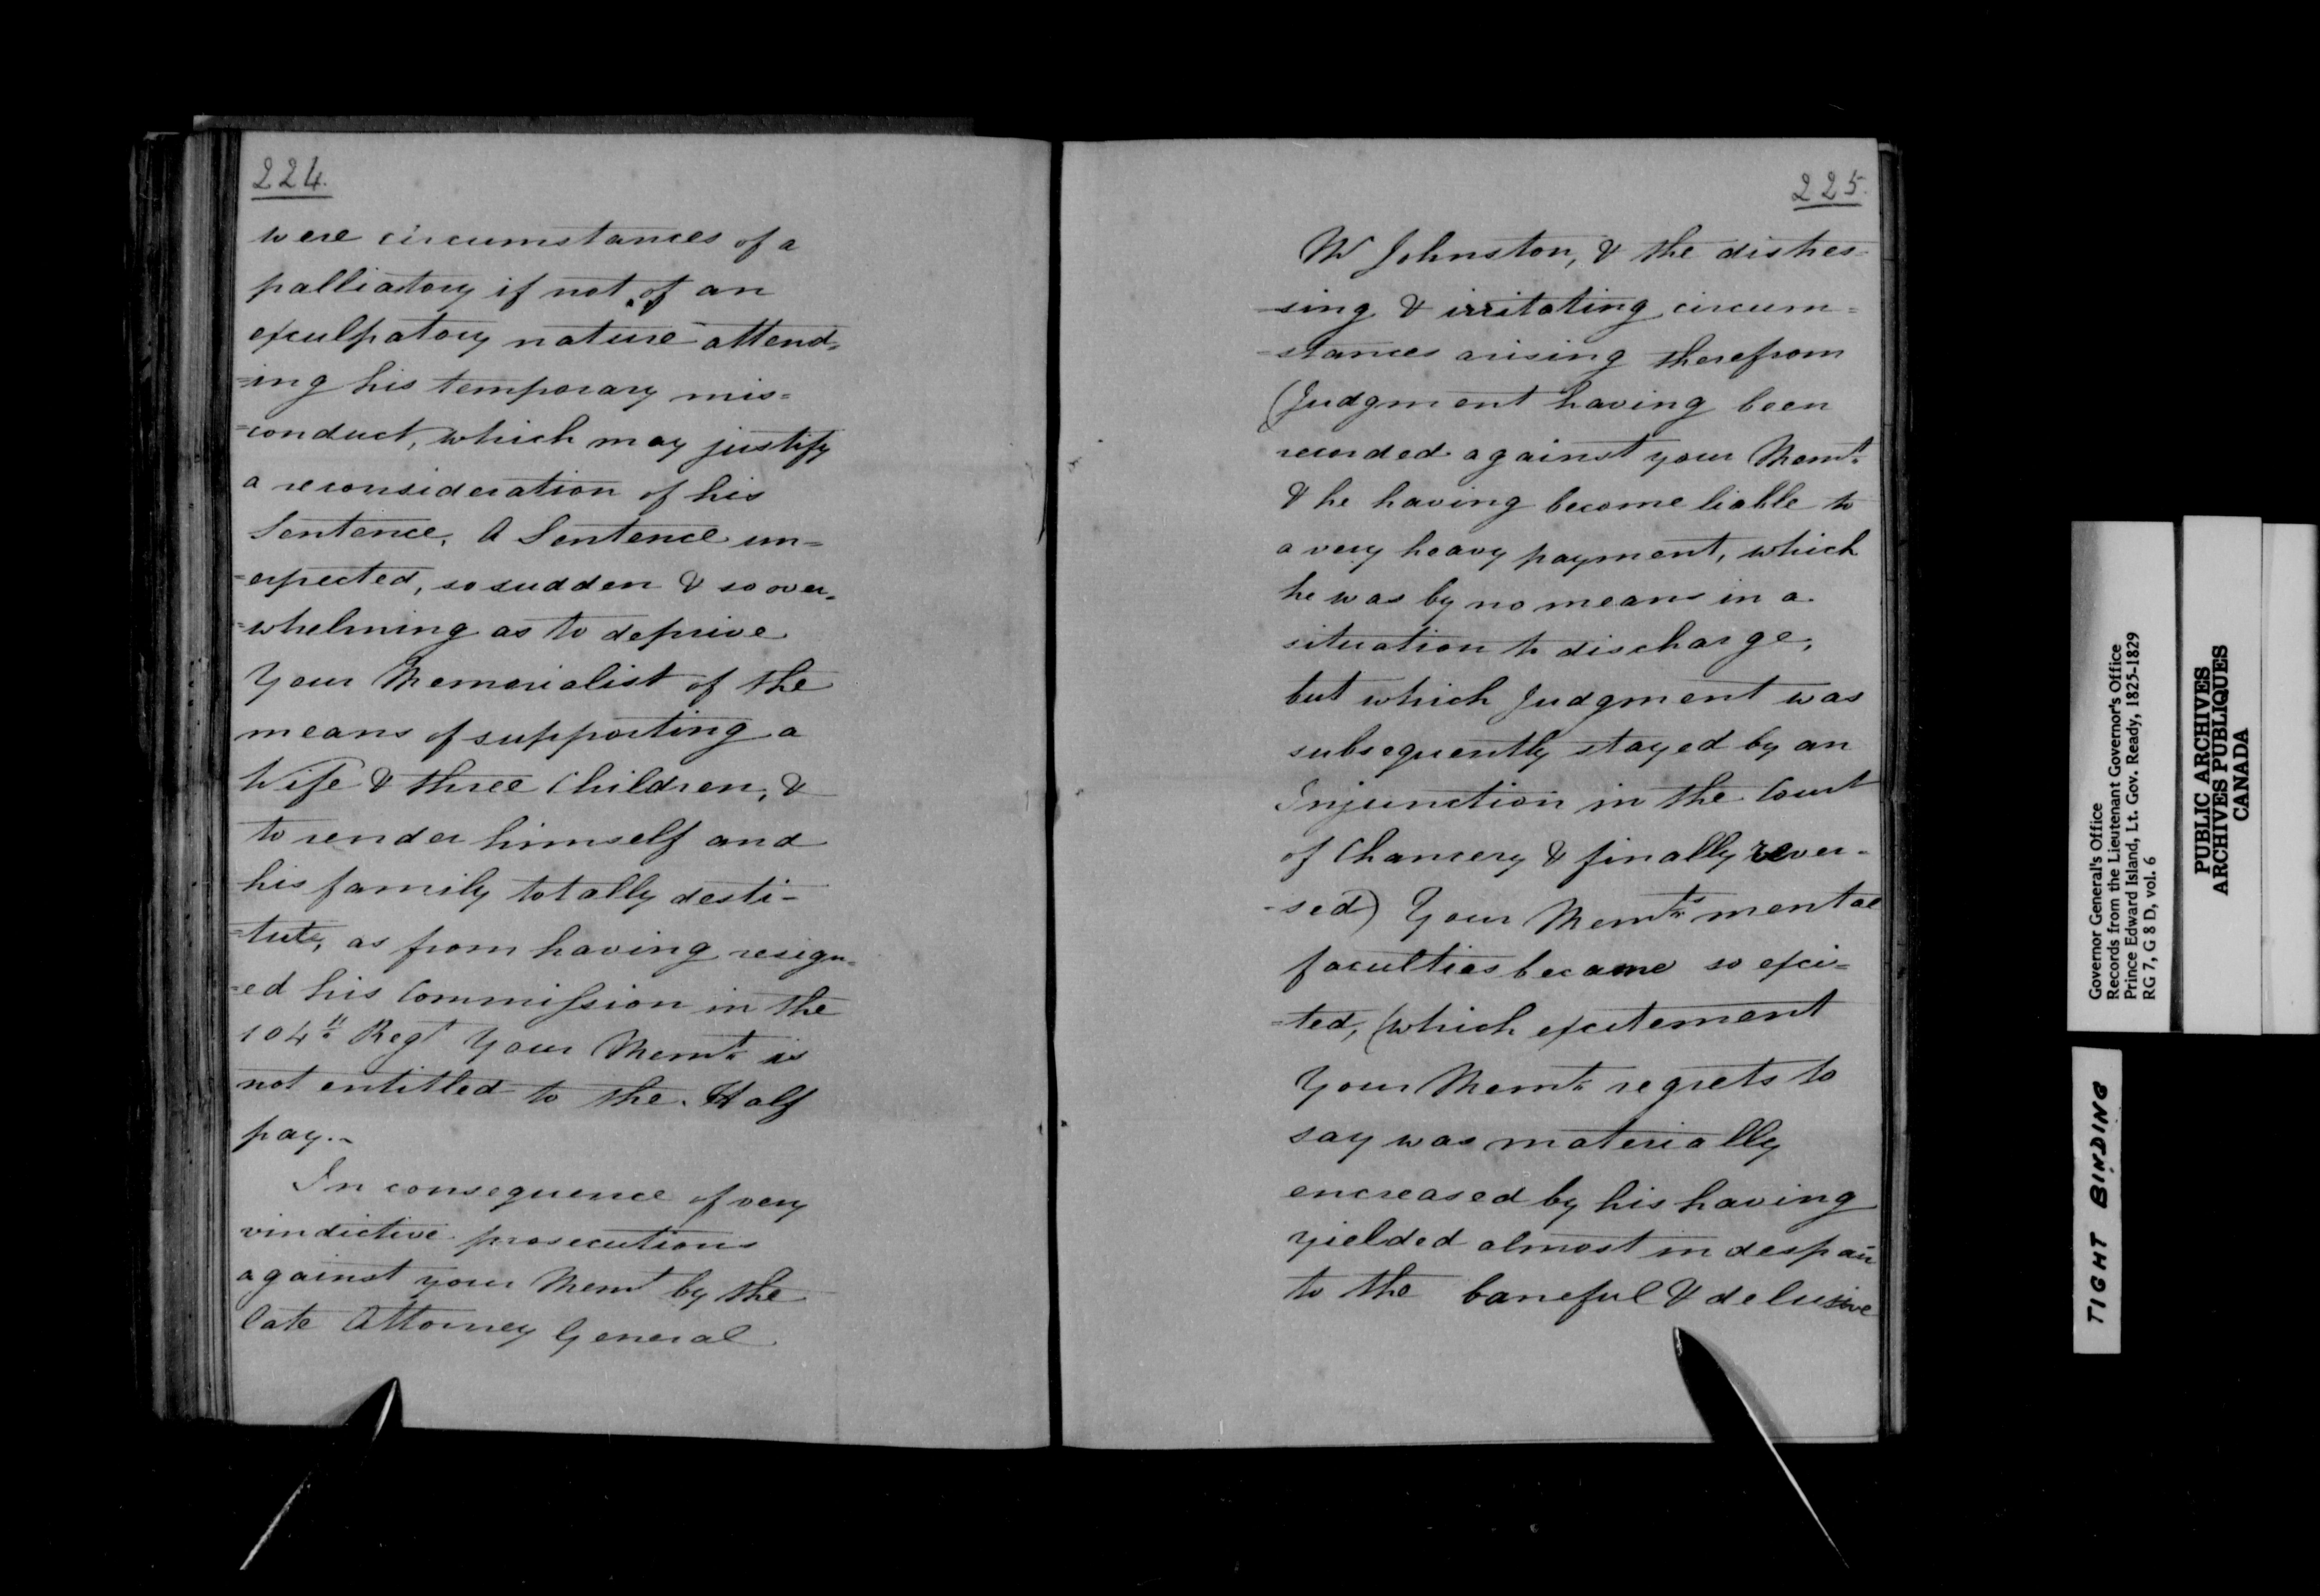 224.
were circumstances of a
palliatory if not of an
exculpatory nature attend=
=ing his temporary mis=
=conduct, which may justify
a reconsideration of his
Sentence. A Sentence un=
=expected, so sudden & so over=
=whelming as to deprive
Your Memorialist of the
means of supporting a
Wife & three Children, &
to render himself and
his family totally desti-
=tute, as from having resign=
=ed his Commission in the
104th Regt Your Memt is
not entitled to the Half
pay.-
In consequence of very
vindictive prosecutions
against your Memt by the
late Attorney General
225.
W Johnston, & the distres-
-sing & irritating circum=
=stances arising therefrom
(Judgment having been
recorded against your Memt
& he having become liable to
a very heavy payment, which
he was by no means in a
situation to discharge,
but which Judgment was
subsequently stayed by an
Injunction in the Court
of Chancery & finally rever-
-sed) Your Memts mental
faculties became so exci=
=ted, (which excitement
Your Memt regrets to
say was materially
encreased by his having
yielded almost in despair
to the baneful & delusive
Governor General's Office
Records from the Lieutenant Governor's Office
Prince Edward Island, Lt. Gov. Ready, 1825-1829
RG 7, G 8 D, vol. 6
PUBLIC ARCHIVES
ARCHIVES PUBLIQUES
CANADA
TIGHT BINDING